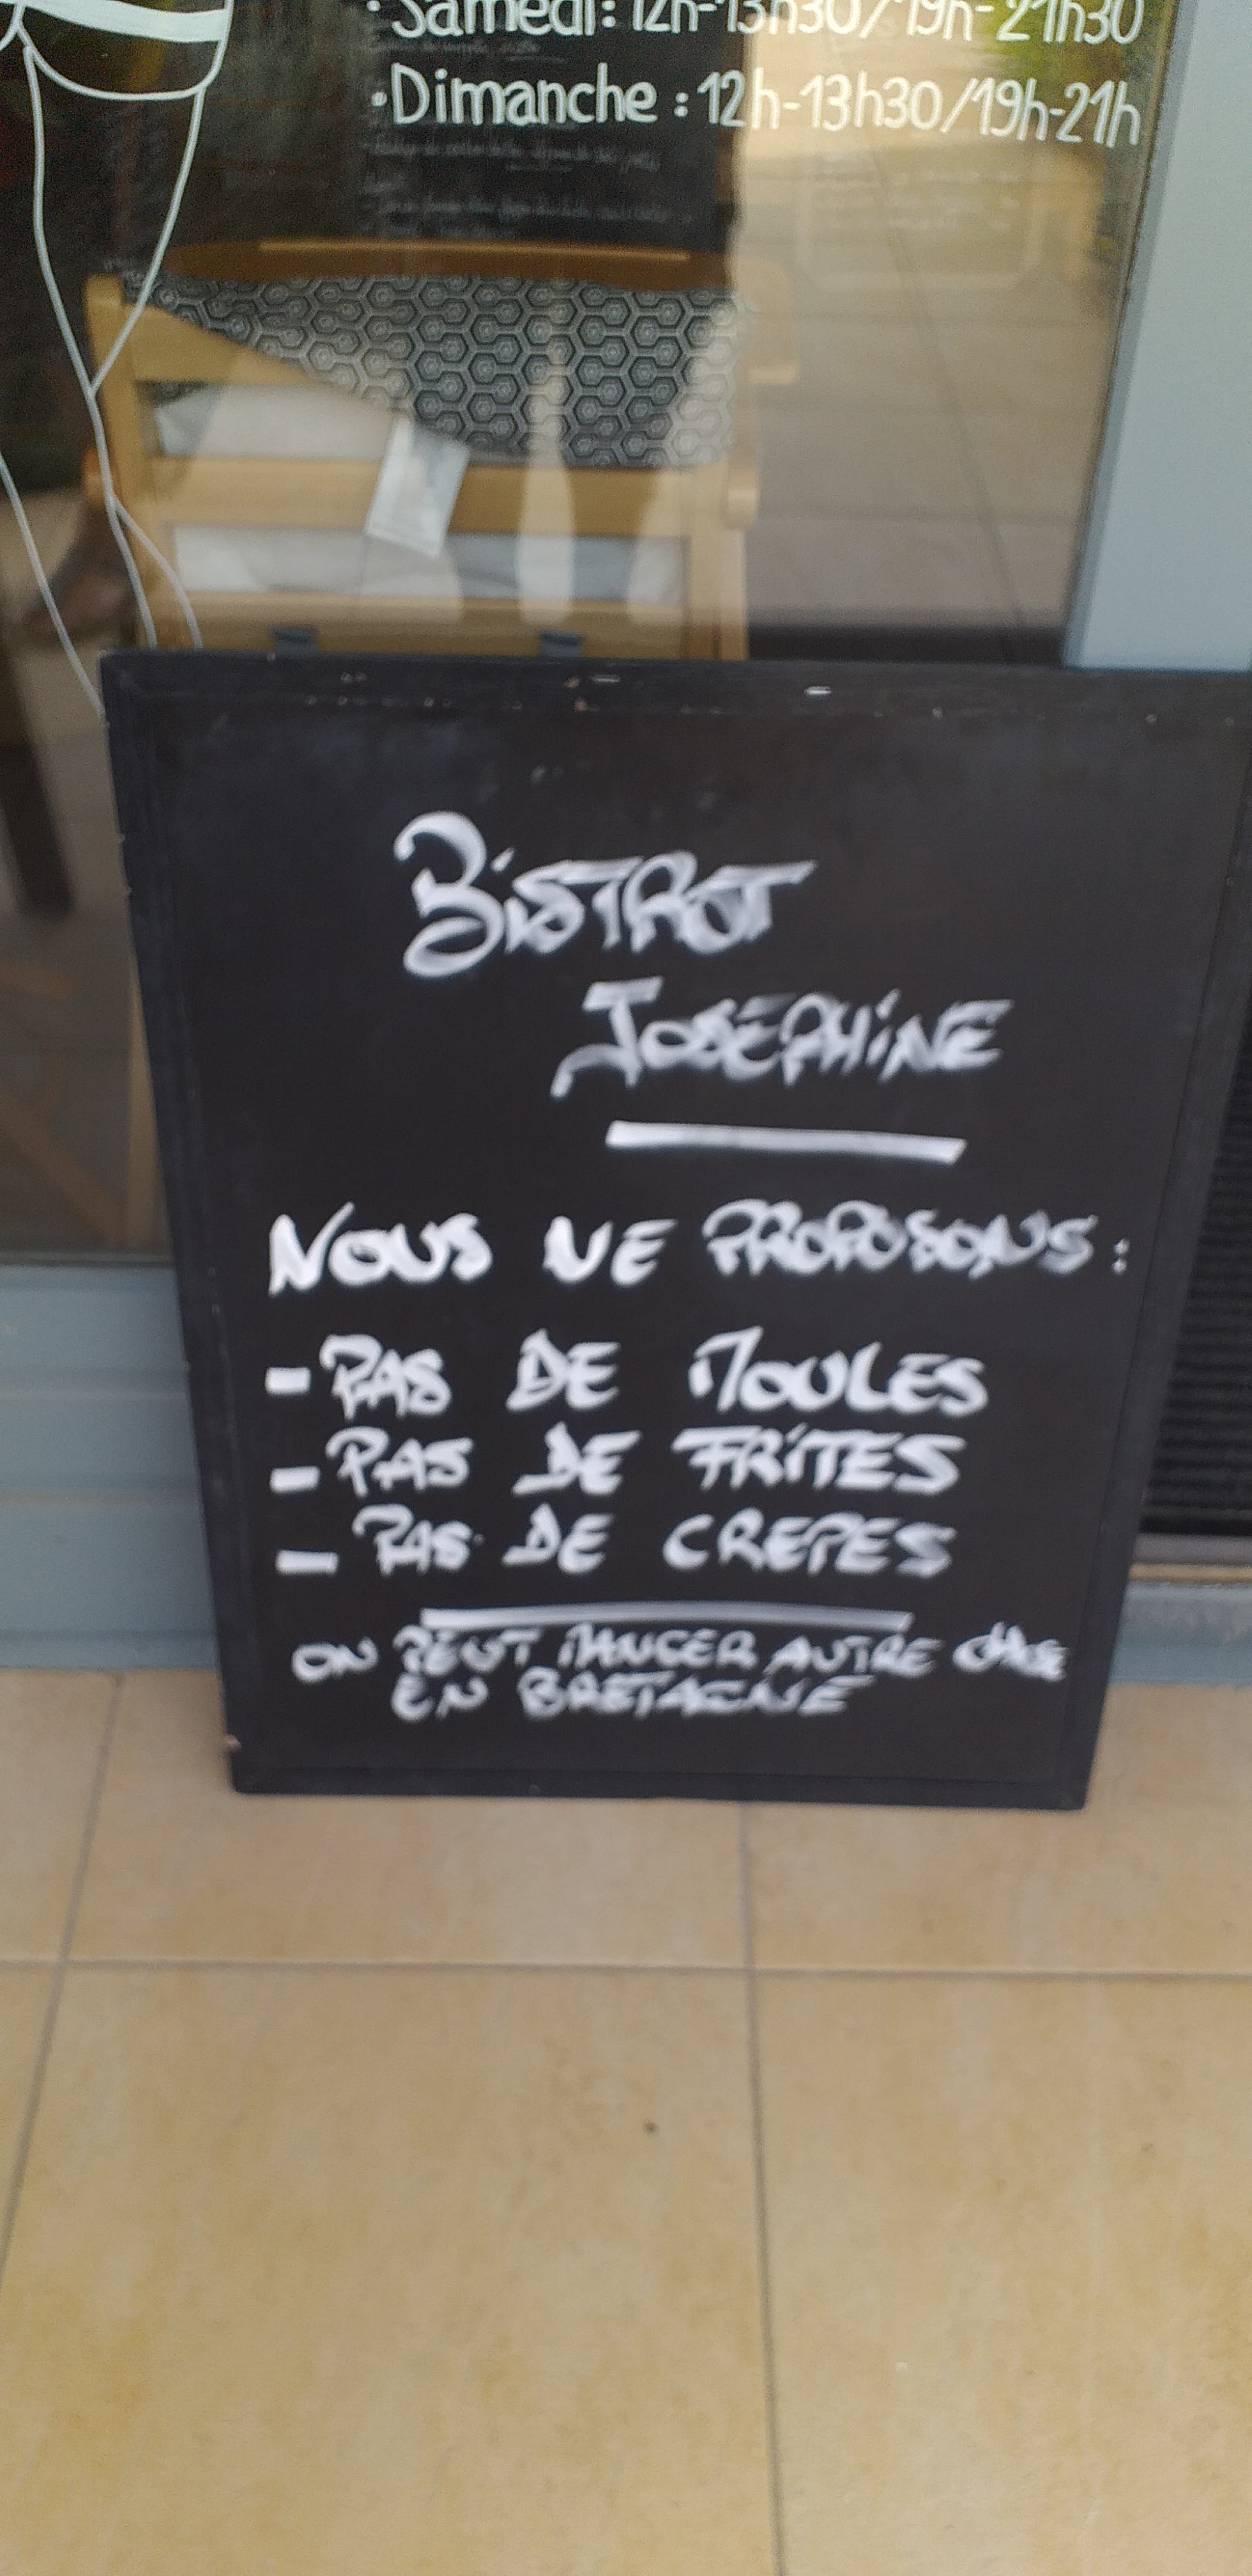 • Samedi : 12h-13h30/19h-21h30
• Dimanche : 12h-13h30/19h-21h
BiSTROT
JOSEPHiNE
NOUS NE PROPOSONS :
- PAS DE MOULES
- PAS DE FRiTES
- PAS DE CREPES
ON PEUT MANGER AUTRE CHOSE
EN BRETAGNE